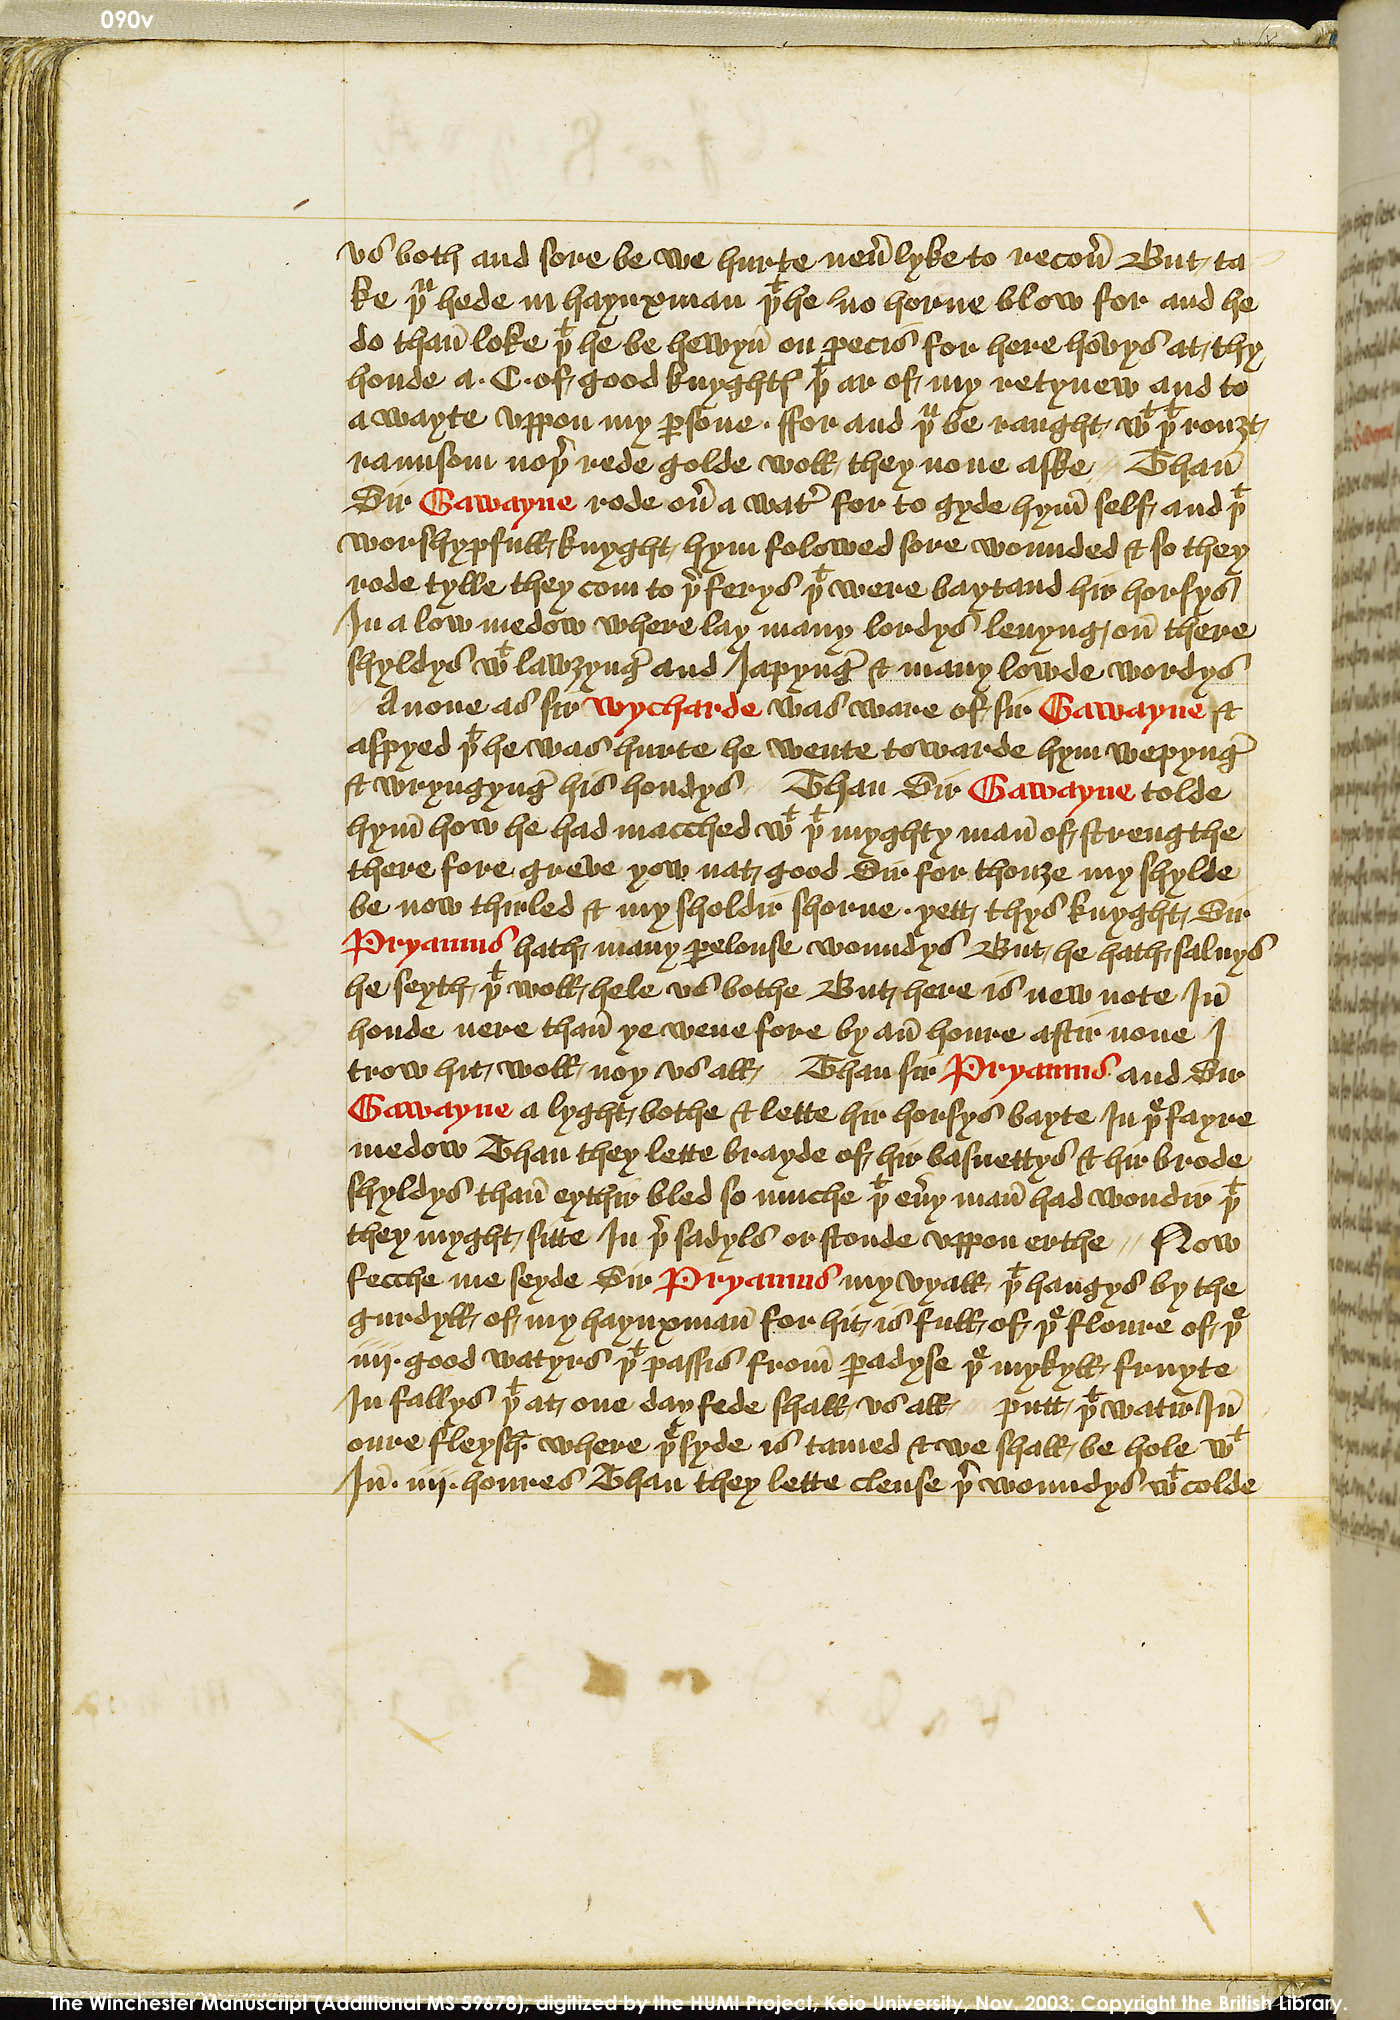 090v
vs both and sore be we hurte neu̅ lyke to recou̅ But ta
ke þᵘ hede m haynxman þᵗ he no horne blow for and he
do than̅ loke þᵗ he be hewyn̅ on pecis for here hovys at thy
honde a · C · of good knyghtꝭ þᵗ ar of my retynew and to
a wayte vppon my ꝑsone · ffor and þᵘ be raught wᵗ þᵗ rouzt
raunsom noþ̉ rede golde woll they none aske Than̅
Sir Gawayne rode ou̅ a wat̉ for to gyde hym̅ self and þᵗ
worshypfull knyght hym folowed sore wounded & so they
rode tylle they com to þ̉ ferys þᵗ were baytand hir horsys
In a low medow where lay many lordys lenyng on̅ there
shyldys wᵗ lawzyng̉ and Japyng̉ & many lowde wordys
Anone as sir wycharde was ware of sir Gawayne &
aspyed þᵗ he was hurte he wente towarde hym wepyng̉
& wryngyng̉ his hondys Than Sir Gawayne tolde
hym̅ how he had macched wᵗ þᵗ myghty man̅ of strengthe
there fore greve yow nat good Sir for thouze my shylde
be now thirled & my sholdir shorne · yett thys knyght Sir
Pryamus hath many ꝑelouse woundys But he hath saluys
he seyth þᵗ woll hele vs bothe But here is new note In̅
honde nere than̅ ye wene fore by an̅ houre aftir none I
trow hit woll noy vs all Than sir Pryamus and Sir
Gawayne a lyght bothe & lette hir horsys bayte In þᵉ fayre
medow Than they lette brayde of hir basnettys & hir brode
shyldys than̅ eythir bled so muche þᵗ eu̅y man̅ had wondir þᵗ
they myght sitte In þ̉ sadyls or stonde vppon erthe // Now
fecche me seyde Sir Pryamus my vyall þᵗ hangys by the
gurdyll of my haynxman̅ for hit is full of þᵉ floure of þᵉ
iiij · good watyrs þᵗ passis from̅ ꝑadyse þᵉ mykyll fruyte
In fallys þᵗ at one day fede shall vs all putt þᵗ watir In̅
oure fleysh where þᵉ syde is tamed & we shall be hole wᵗ
In̅ · iiij · houres Than they lette clense þ̉ woundys wᵗ colde
The Winchester Manuscript (Additional MS 59678), digitized by the HUMI Project, Keio University, Nov. 2003; Copyright the British Library.